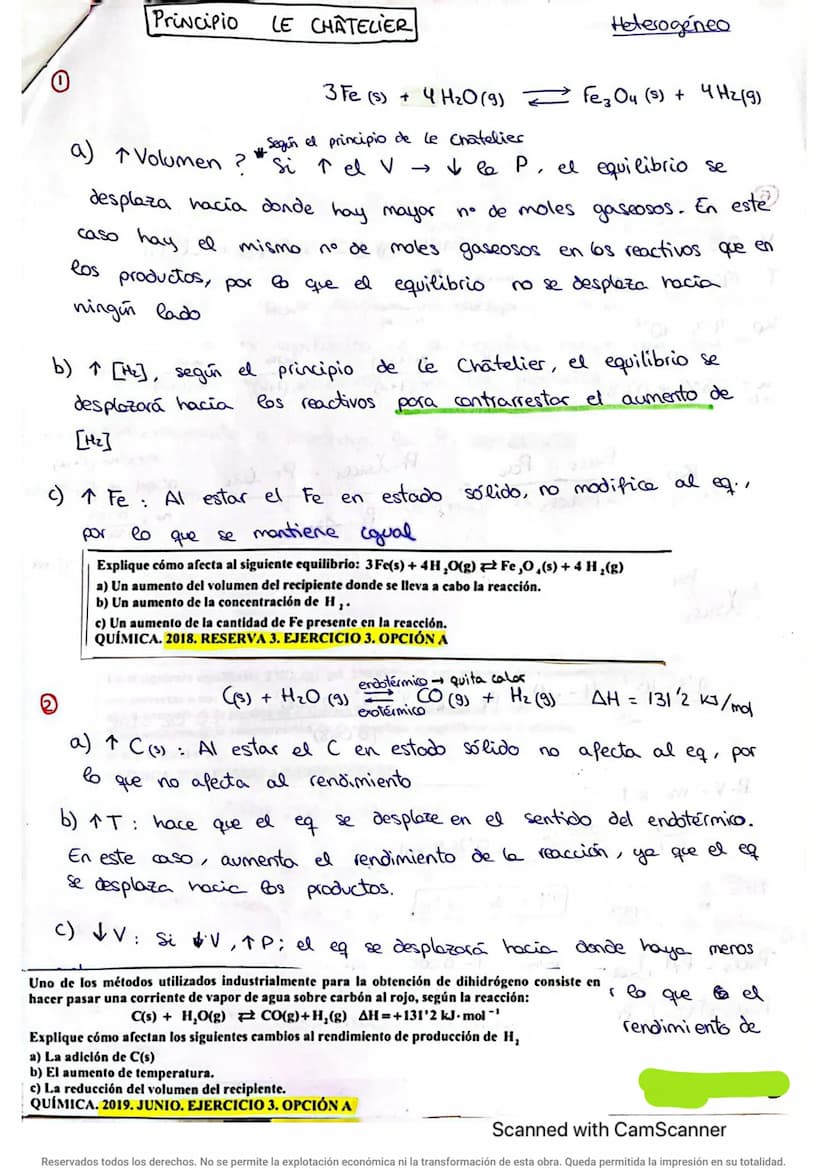 Principio LE CHÂTELIER
Heterogéneo
①
3 Fe (s) + 4 H₂O (g) ⇄ Fe₃O₄ (s) + 4 H₂ (g)
*Según el principio de le Chatelier
a) ↑ Volumen ? Si ↑ el V → ↓ la P, el equilibrio se
desplaza hacia donde hay mayor nº de moles gaseosos. En este
caso hay el mismo nº de moles gaseosos en los reactivos que en
los productos, por lo que el equilibrio no se desplaza hacia
ningún lado
b) ↑ [H₂], según el principio de Le Châtelier, el equilibrio se
desplazará hacia los reactivos para contrarrestar el aumento de
[H₂]
c) ↑ Fe : Al estar el Fe en estado sólido, no modifica al eq.,
por lo que se mantiene igual
Explique cómo afecta al siguiente equilibrio: 3 Fe(s) + 4H₂O(g) ⇄ Fe₃O₄(s) + 4 H₂(g)
a) Un aumento del volumen del recipiente donde se lleva a cabo la reacción.
b) Un aumento de la concentración de H₂.
c) Un aumento de la cantidad de Fe presente en la reacción.
QUÍMICA. 2018. RESERVA 3. EJERCICIO 3. OPCIÓN A
endotérmico → quita calor
② C(s) + H₂O (g) ⇄ CO (g) + H₂ (g) ΔH = 131'2 kJ/mol
exotérmico
a) ↑ C (s) : Al estar el C en estado sólido no afecta al eq, por
lo que no afecta al rendimiento
b) ↑T : hace que el eq se desplaze en el sentido del endotérmico.
En este caso, aumenta el rendimiento de la reacción, ya que el eq
se desplaza hacia los productos.
c) ↓V : Si ↓V, ↑P; el eq se desplazará hacia donde haya menos
lo que el
rendimiento de
Uno de los métodos utilizados industrialmente para la obtención de dihidrógeno consiste en
hacer pasar una corriente de vapor de agua sobre carbón al rojo, según la reacción:
C(s) + H₂O(g) ⇄ CO(g)+H₂(g) ΔH=+131'2 kJ·mol⁻¹
Explique cómo afectan los siguientes cambios al rendimiento de producción de H₂
a) La adición de C(s)
b) El aumento de temperatura.
c) La reducción del volumen del recipiente.
QUÍMICA. 2019. JUNIO. EJERCICIO 3. OPCIÓN A
Scanned with CamScanner
Reservados todos los derechos. No se permite la explotación económica ni la transformación de esta obra. Queda permitida la impresión en su totalidad.